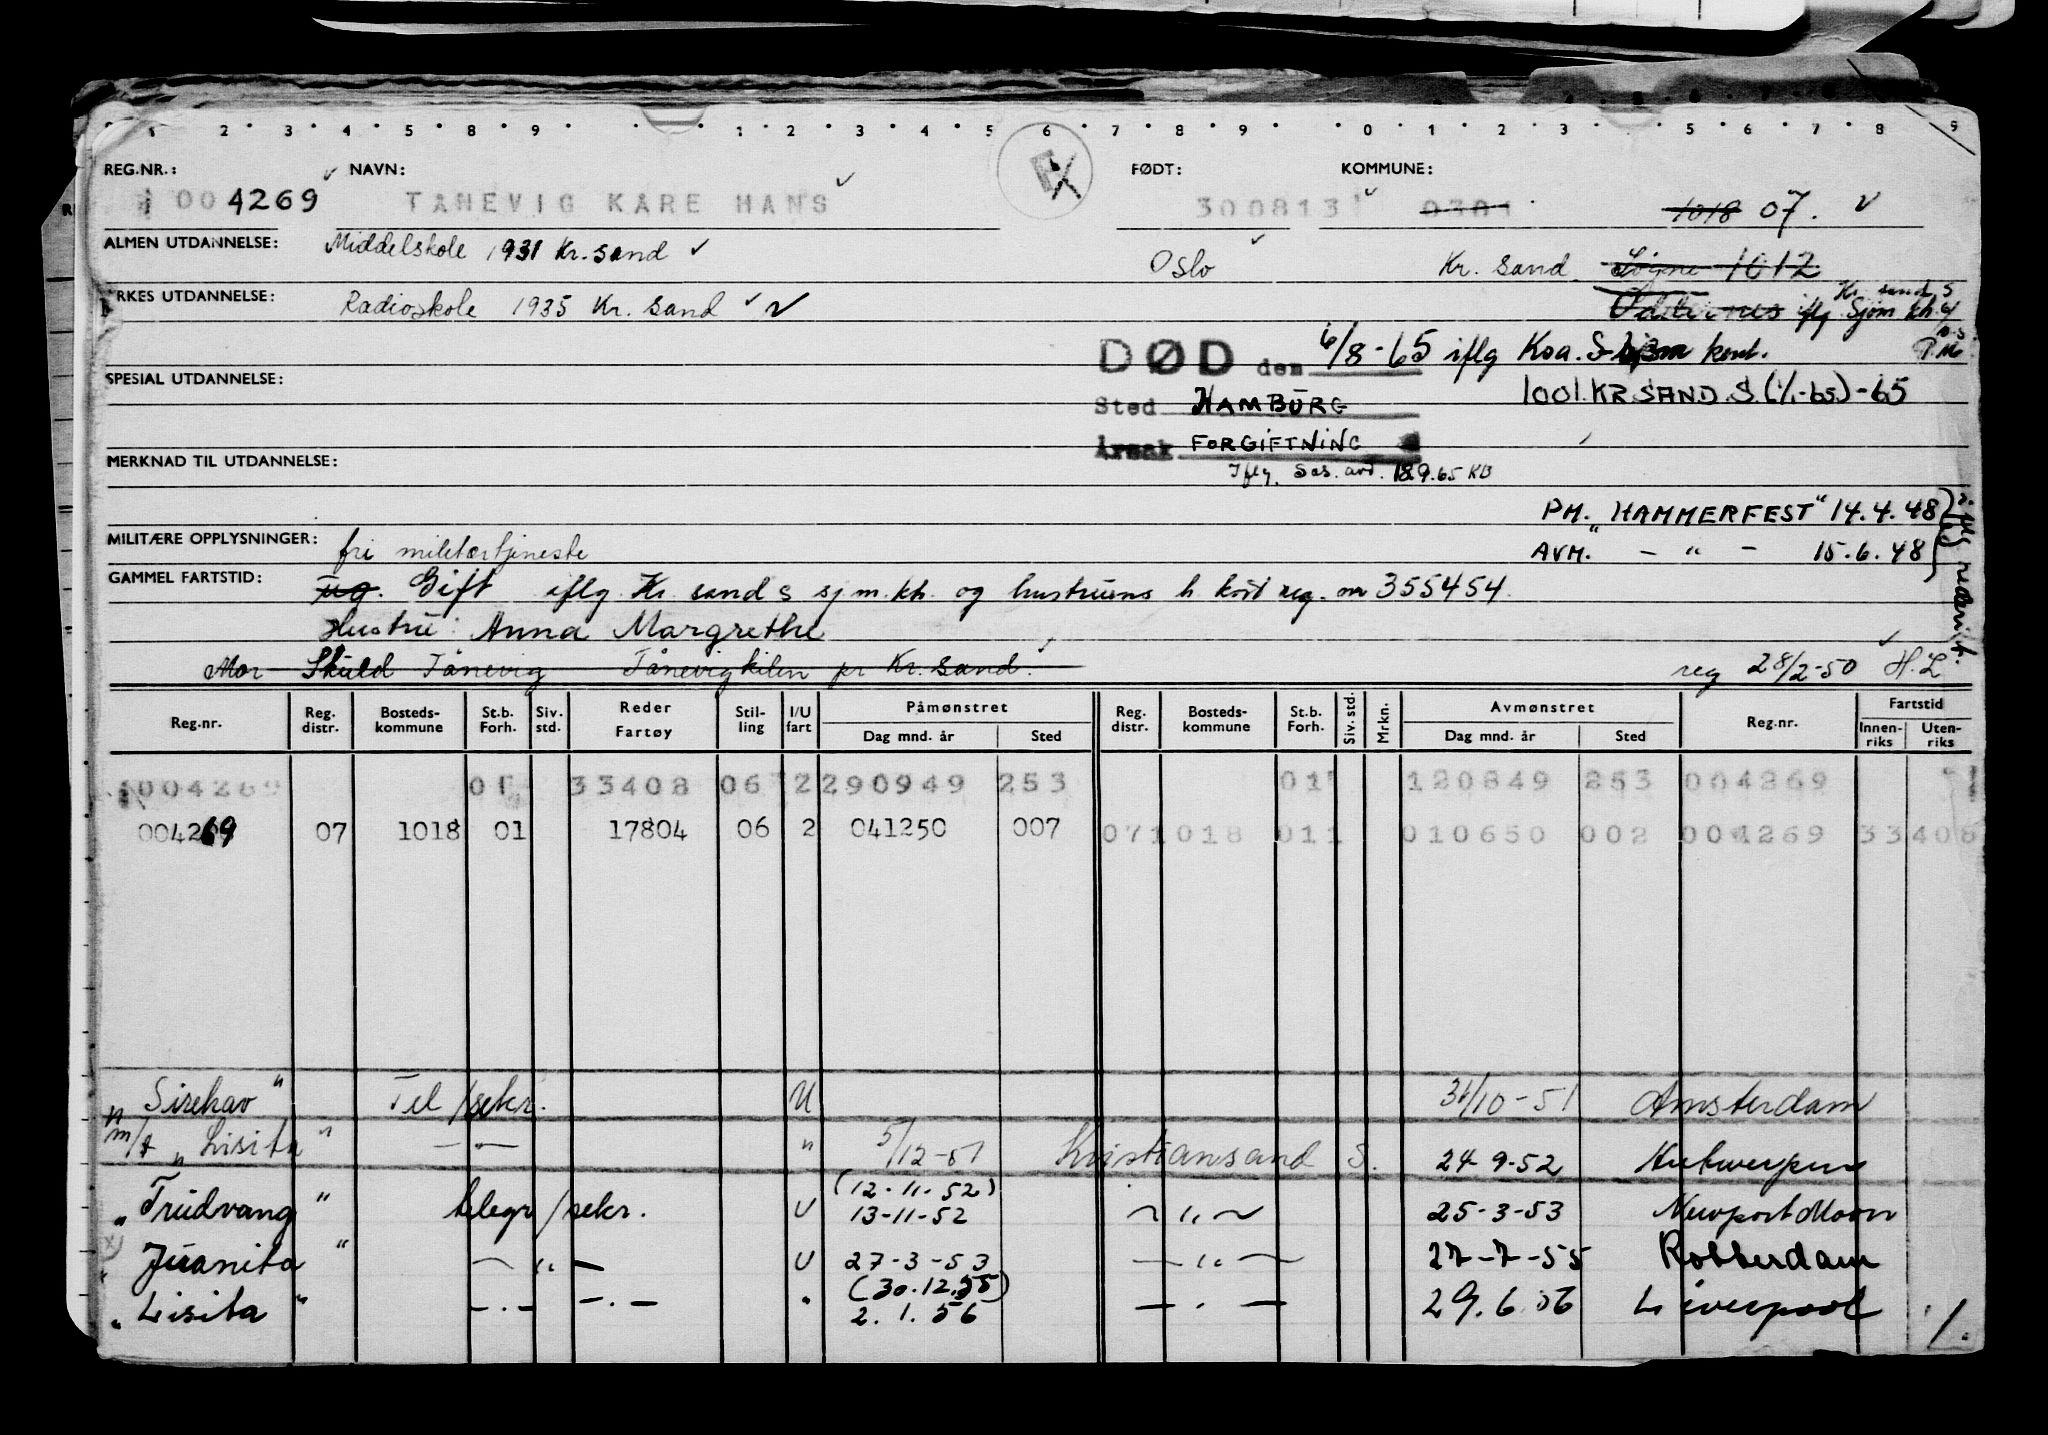 1 2 3 4 5 8 9 1 2 3 4 5 6 7 8 9 0 1 2 3 5 6 7 8 9
REG.NR.: NAVN: FØDT: KOMMUNE:
004269 TANEVIG KARE HANS 300813 0301 1018 07.
ALMEN UTDANNELSE: Middelskole 1931 Kr.sand Oslo Kr. sand Søgne 1012
YRKES UTDANNELSE: Radioskole 1935 Kr. sand Oddernes iflg Sjøm kh. Kr. sand S
DØD den 6/8-65 iflg Koa. kont.
SPESIAL UTDANNELSE:
Sted HAMBURG 1001.KR.SAND.S.(1/1-65)-65
Årsak FORGIFTNING
MERKNAD TIL UTDANNELSE: Iflg. sos. avd. 18.9.65 KB
PM. "HAMMERFEST" 14.4.48
MILITÆRE OPPLYSNINGER: fri militærtjeneste AVM. — " — 15.6.48
GAMMEL FARTSTID: ug. Gift iflg. Kr. sand s sjm.kh. og hustruens h kort reg. nr 355454.
Hustru: Anna Margrethe
Mor Skuld Tånevig Tånevigkilen pr Kr.sand. reg 28/2-50 H.L
Reg.nr. Reg. distr. Bosteds-kommune St.b. Forh. Siv. std. Reder Fartøy Stil-ling I/U fart Påmønstret Dag mnd. år Sted Reg. distr. Bosteds-kommune St.b. Forh. Siv. std. Mrkn. Avmønstret Dag mnd. år Sted Reg.nr. Fartstid Innen-riks Uten-riks
004269 01 33408 06 2 290949 253 01 120849 253 004269
004269 07 1018 01 17804 06 2 041250 007 07 1018 011 010650 002 004269 33408
"Sirehav" Tel/sekr. U 31/10-51 Amsterdam
m/t "Lisita" — " — " 5/12-51 Kristiansand S. 24-9-52 Antwerpen
(12-11-52)
"Trudvang" telegr/sekr. U 13-11-52 — " — 25-3-53 Newport Monn
"Juanita" — " — U 27-3-53 — " — 27-7-55 Rotterdam
(30.12.55)
"Lisita" — " — — " — " 2.1.56 — " — 29.6.56 Liverpool